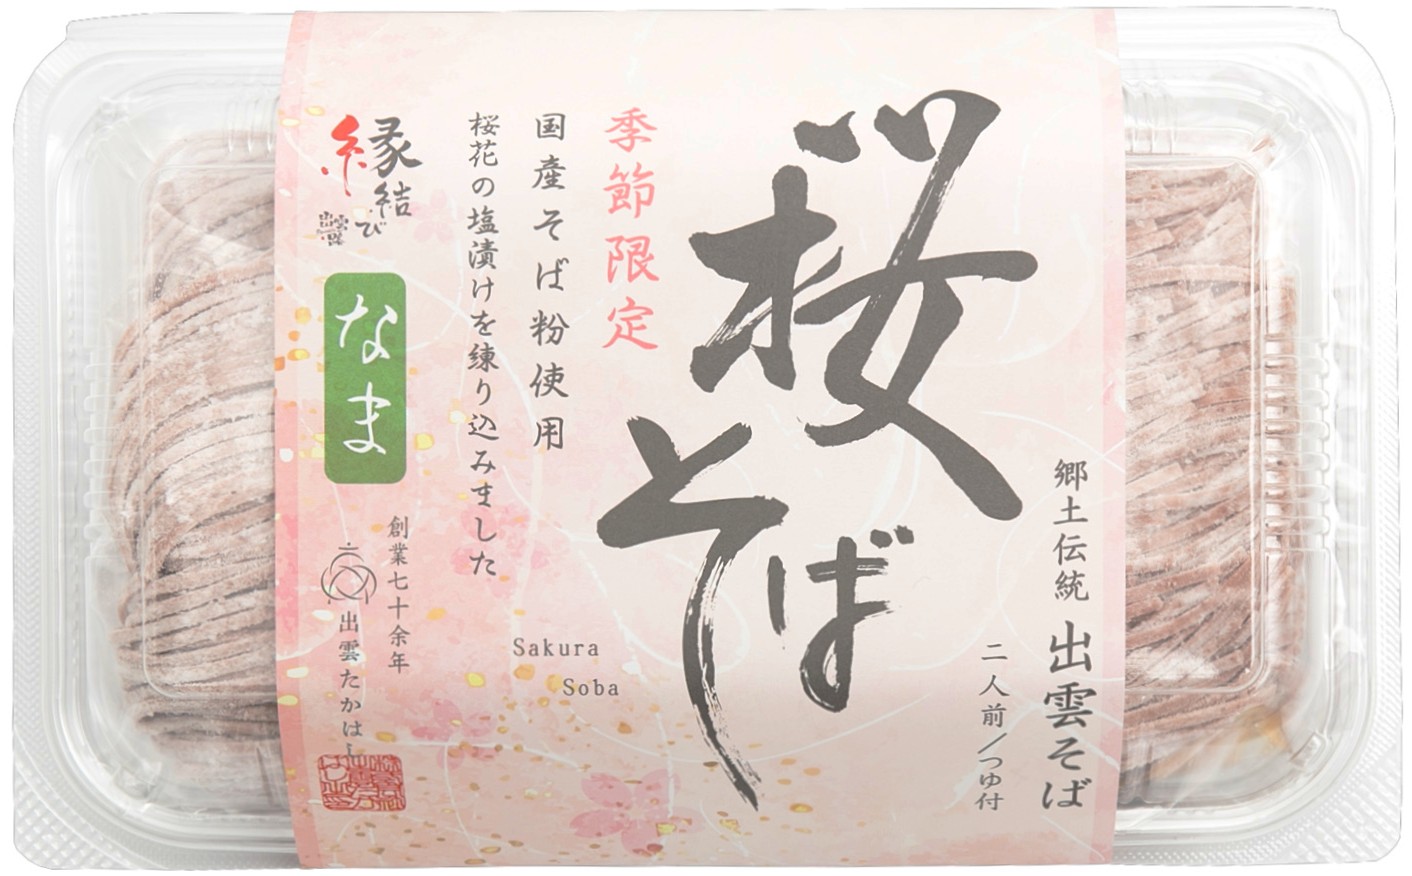 郷土伝統 出雲そば
二人前／つゆ付
桜そば
Sakura
Soba
季節限定
国産そば粉使用
桜花の塩漬けを練り込みました
縁結び
なま
創業七十余年
出雲たかはし